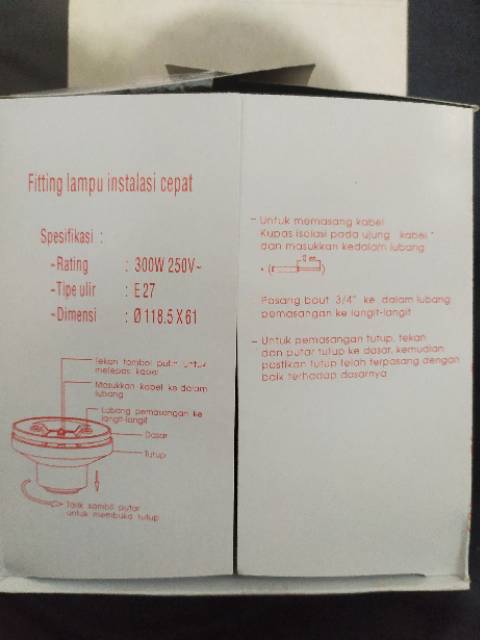 Fitting lampu instalasi cepat
Spesifikasi :
-Rating : 300W 250V~
-Tipe ulir : E27
-Dimensi : Ø118.5X61
Tekan tombol putih untuk
melepas kabel
Masukkan kabel ke dalam
lubang
Lubang pemasangan ke
langit-langit
Dasar
Tutup
Tarik sambil putar
untuk membuka tutup
- Untuk memasang kabel
Kupas isolasi pada ujung kabel
dan masukkan kedalam lubang
Pasang baut 3/4" ke dalam lubang
pemasangan ke langit-langit
- Untuk pemasangan tutup, tekan
dan putar tutup ke dasar, kemudian
pastikan tutup telah terpasang dengan
baik terhadap dasarnya